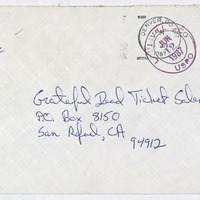 DENVER, CO
JUN
1987
USPO
Grateful Dead Ticket Sales
P.O. Box 8150
San Rafael, CA
94912